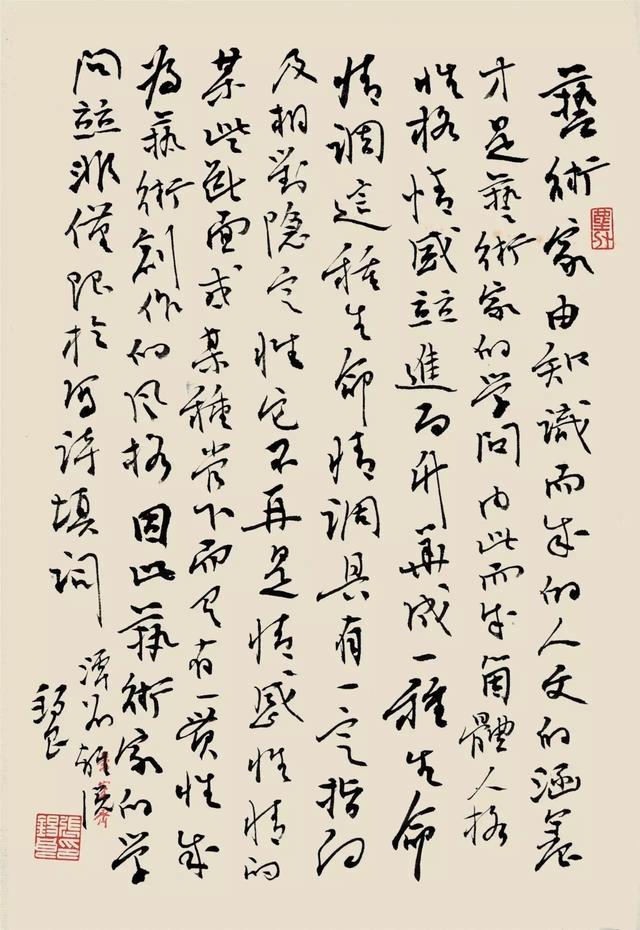 藝術家由知識而成的人文的涵養
才是藝術家的学問由此而成箇體人格
性格情感並進而升華成一種生命
情调這種生命情調具有一定指向
及相對隐定性它不再是情感性情的
某些断面或某種当下而是有一贯性成
為藝術創作的风格因此藝術家的学
問並非僅限於写詩填詞